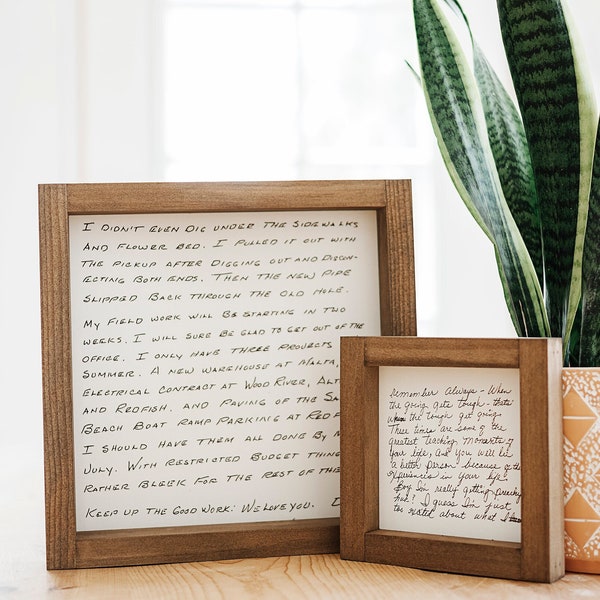 I DIDN'T EVEN DIG UNDER THE SIDEWALKS
AND FLOWER BED. I PULLED IT OUT WITH
THE PICKUP AFTER DIGGING OUT AND DISCON-
ECTING BOTH ENDS. THEN THE NEW PIPE
SLIPPED BACK THROUGH THE OLD HOLE.
MY FIELD WORK WILL BE STARTING IN TWO
WEEKS. I WILL SURE BE GLAD TO GET OUT OF THE
OFFICE. I ONLY HAVE THREE PROJECTS
SUMMER. A NEW WAREHOUSE AT MALTA,
ELECTRICAL CONTRACT AT WOOD RIVER, ALT
AND REDFISH. AND PAVING OF THE SA
BEACH BOAT RAMP PARKING AT REDF
I SHOULD HAVE THEM ALL DONE BY M
JULY. WITH RESTRICTED BUDGET THING
RATHER BLEEK FOR THE REST OF THE
KEEP UP THE GOOD WORK. WE LOVE YOU.
Remember always - When
the going gets tough - that's
when the tough get going.
These times are some of the
greatest teaching moments of
your life, and you will be
a better person because of the
experiences in your life.
Boy I'm really getting preachy
huh? I guess I'm just
too excited about what I